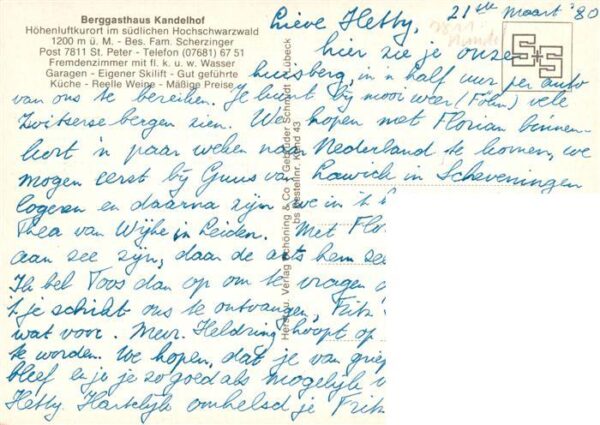 Berggasthaus Kandelhof
Höhenluftkurort im südlichen Hochschwarzwald
1200 m ü. M. - Bes. Fam. Scherzinger
Post 7811 St. Peter - Telefon (07681) 67 51
Fremdenzimmer mit fl. k. u. w. Wasser
Garagen - Eigener Skilift - Gut geführte
Küche - Reelle Weine - Mäßige Preise
21ste Maart '80
Lieve Hetty,
hier zie je onze
huisberg, in 'n half uur per auto
van ons te bereiken. Je kunt bij mooi weer (Föhn) vele
Zwitserse bergen zien. We hopen met Florian binnen-
kort 'n paar weken naar Nederland te komen, we
mogen eerst bij Guus van Lawick in Scheveningen
logeren en daarna zijn we in 't
Thea van Wijhe in Leiden. Met Flo
aan zee zijn, daar de arts hem zee
Ik bel Toos dan op om te vragen
't je schikt ons te ontvangen, Fritz
wat voor. Mevr. Heldring hoopt op
te worden. We hopen, dat je van griep
bleef en je je zo goed als mogelijk
Hetty. Hartelijk omhelsd je Fritz
Herst. u. Verlag Schöning & Co + Gebrüder Schmidt, Lübeck
bs Bestellnr. Kand 43
S+S